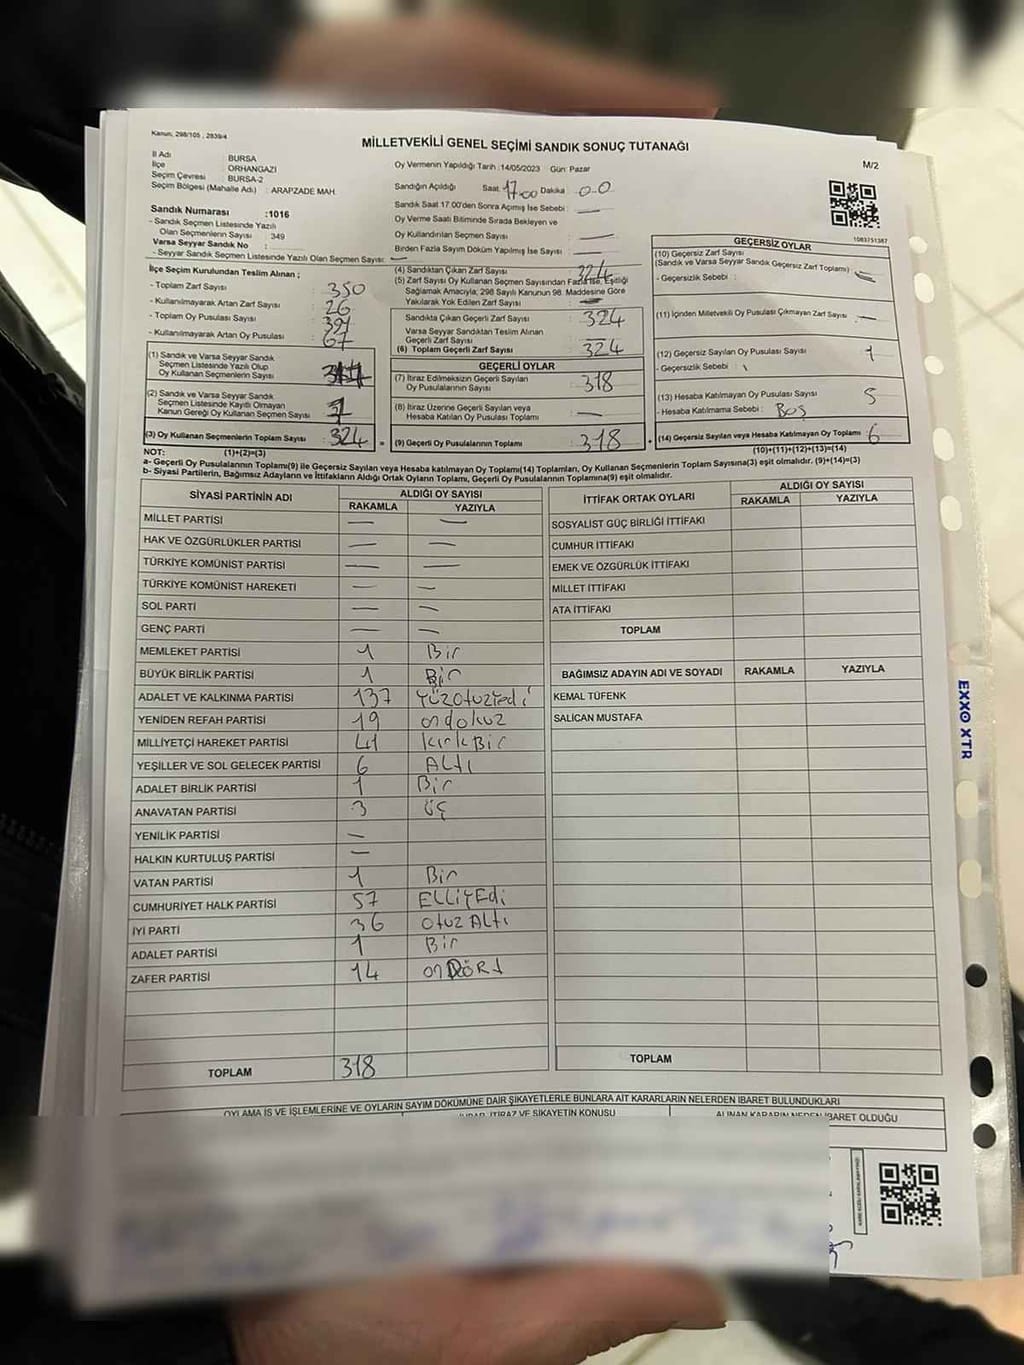 Kanun, 298/105 , 2839/4
MİLLETVEKİLİ GENEL SEÇİMİ SANDIK SONUÇ TUTANAĞI
M/2
İl Adı : BURSA
İlçe : ORHANGAZİ
Seçim Çevresi : BURSA-2
Seçim Bölgesi (Mahalle Adı) : ARAPZADE MAH.
Sandık Numarası :1016
- Sandık Seçmen Listesinde Yazılı
Olan Seçmenlerin Sayısı : 349
Varsa Seyyar Sandık No :
- Seyyar Sandık Seçmen Listesinde Yazılı Olan Seçmen Sayısı: —
Oy Vermenin Yapıldığı Tarih :14/05/2023 Gün: Pazar
Sandığın Açıldığı Saat: 17:00 Dakika : 0-0
Sandık Saat 17:00'den Sonra Açımış İse Sebebi : —
Oy Verme Saati Bitiminde Sırada Bekleyen ve
Oy Kullandırılan Seçmen Sayısı : —
Birden Fazla Sayım Döküm Yapılmış İse Sayısı : —
1083751387
İlçe Seçim Kurulundan Teslim Alınan ;
- Toplam Zarf Sayısı : 350
- Kullanılmayarak Artan Zarf Sayısı : 26
- Toplam Oy Pusulası Sayısı : 391
- Kullanılmayarak Artan Oy Pusulası : 67
(1) Sandık ve Varsa Seyyar Sandık
Seçmen Listesinde Yazılı Olup
Oy Kullanan Seçmenlerin Sayısı :
(2) Sandık ve Varsa Seyyar Sandık
Seçmen Listesinde Kayıtlı Olmayan
Kanun Gereği Oy Kullanan Seçmen Sayısı :
(3) Oy Kullanan Seçmenlerin Toplam Sayısı : 324
(4) Sandıktan Çıkan Zarf Sayısı : 324
(5) Zarf Sayısı Oy Kullanan Seçmen Sayısından Fazla İse, Eşitliği
Sağlamak Amacıyla; 298 Sayılı Kanunun 98. Maddesine Göre
Yakılarak Yok Edilen Zarf Sayısı : —
Sandıkta Çıkan Geçerli Zarf Sayısı : 324
Varsa Seyyar Sandıktan Teslim Alınan
Geçerli Zarf Sayısı :
(6) Toplam Geçerli Zarf Sayısı : 324
GEÇERLİ OYLAR
(7) İtiraz Edilmeksizin Geçerli Sayılan
Oy Pusulalarının Sayısı : 318
(8) İtiraz Üzerine Geçerli Sayılan veya
Hesaba Katılan Oy Pusulası Toplamı : —
= (9) Geçerli Oy Pusulalarının Toplamı : 318
GEÇERSİZ OYLAR
(10) Geçersiz Zarf Sayısı
(Sandık ve Varsa Seyyar Sandık Geçersiz Zarf Toplamı) : —
- Geçersizlik Sebebi :
(11) İçinden Milletvekili Oy Pusulası Çıkmayan Zarf Sayısı : —
(12) Geçersiz Sayılan Oy Pusulası Sayısı : 1
- Geçersizlik Sebebi :
(13) Hesaba Katılmayan Oy Pusulası Sayısı : 5
- Hesaba Katılmama Sebebi : Boş
+ (14) Geçersiz Sayılan veya Hesaba Katılmayan Oy Toplamı : 6
NOT: (1)+(2)=(3) (10)+(11)+(12)+(13)=(14)
a- Geçerli Oy Pusulalarının Toplamı(9) ile Geçersiz Sayılan veya Hesaba katılmayan Oy Toplamı(14) Toplamları, Oy Kullanan Seçmenlerin Toplam Sayısına(3) eşit olmalıdır. (9)+(14)=(3)
b- Siyasi Partilerin, Bağımsız Adayların ve İttifakların Aldığı Ortak Oyların Toplamı, Geçerli Oy Pusulalarının Toplamına(9) eşit olmalıdır.
SİYASİ PARTİNİN ADI ALDIĞI OY SAYISI
RAKAMLA YAZIYLA
MİLLET PARTİSİ — —
HAK VE ÖZGÜRLÜKLER PARTİSİ — —
TÜRKİYE KOMÜNİST PARTİSİ — —
TÜRKİYE KOMÜNİST HAREKETİ — —
SOL PARTİ — —
GENÇ PARTİ — —
MEMLEKET PARTİSİ 1 Bir
BÜYÜK BİRLİK PARTİSİ 1 Bir
ADALET VE KALKINMA PARTİSİ 137 Yüzotuzyedi
YENİDEN REFAH PARTİSİ 19 ondokuz
MİLLİYETÇİ HAREKET PARTİSİ 41 KırkBir
YEŞİLLER VE SOL GELECEK PARTİSİ 6 ALtı
ADALET BİRLİK PARTİSİ 1 Bir
ANAVATAN PARTİSİ 3 üç
YENİLİK PARTİSİ —
HALKIN KURTULUŞ PARTİSİ —
VATAN PARTİSİ 1 Bir
CUMHURİYET HALK PARTİSİ 57 ELLİYEdi
İYİ PARTİ 36 Otuz Altı
ADALET PARTİSİ 1 Bir
ZAFER PARTİSİ 14 onDÖRt
TOPLAM 318
İTTİFAK ORTAK OYLARI ALDIĞI OY SAYISI
RAKAMLA YAZIYLA
SOSYALİST GÜÇ BİRLİĞİ İTTİFAKI
CUMHUR İTTİFAKI
EMEK VE ÖZGÜRLÜK İTTİFAKI
MİLLET İTTİFAKI
ATA İTTİFAKI
TOPLAM
BAĞIMSIZ ADAYIN ADI VE SOYADI RAKAMLA YAZIYLA
KEMAL TÜFENK
SALİCAN MUSTAFA
TOPLAM
OYLAMA İŞ VE İŞLEMLERİNE VE OYLARIN SAYIM DÖKÜMÜNE DAİR ŞİKAYETLERLE BUNLARA AİT KARARLARIN NELERDEN İBARET BULUNDUKLARI
İTİRAZ VE ŞİKAYETİN KONUSU ALINAN KARARIN NEDEN İBARET OLDUĞU
EXXO XTR